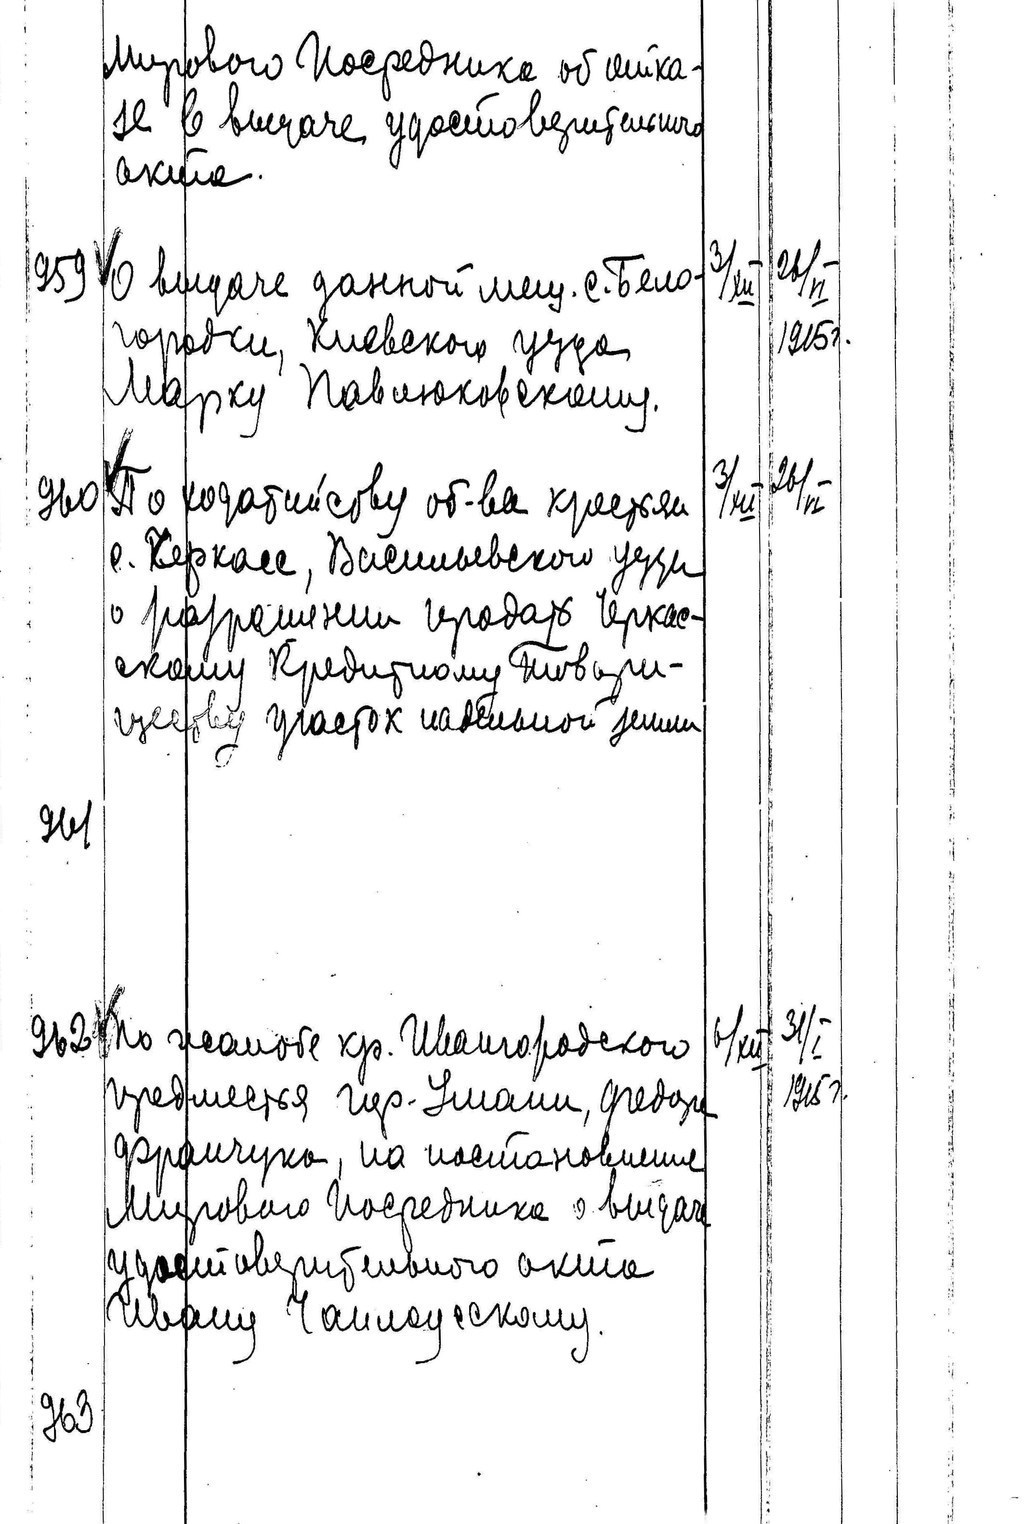 Мирового Посредника об отка-
зе в выдаче удостоверительного
акта.
959 О выдаче данной мещ. с. Бело- 3/XII 26/VI
городки, Киевского уезда 1915 г.
Марку Павлюковскому.
960 По ходатайству об-ва крестьян 3/XII 26/VI
с. Черкасс, Васильевского уезда
о разрешении продать Черкас-
скому Кредитному Товари-
ществу участок надельной земли
961
962 По жалобе кр. Ивангородского 6/XII 31/I
предместья гор. Умани, Федора 1915 г.
Франчука, на постановление
Мирового Посредника о выдаче
удостоверительного акта
Ивану
963